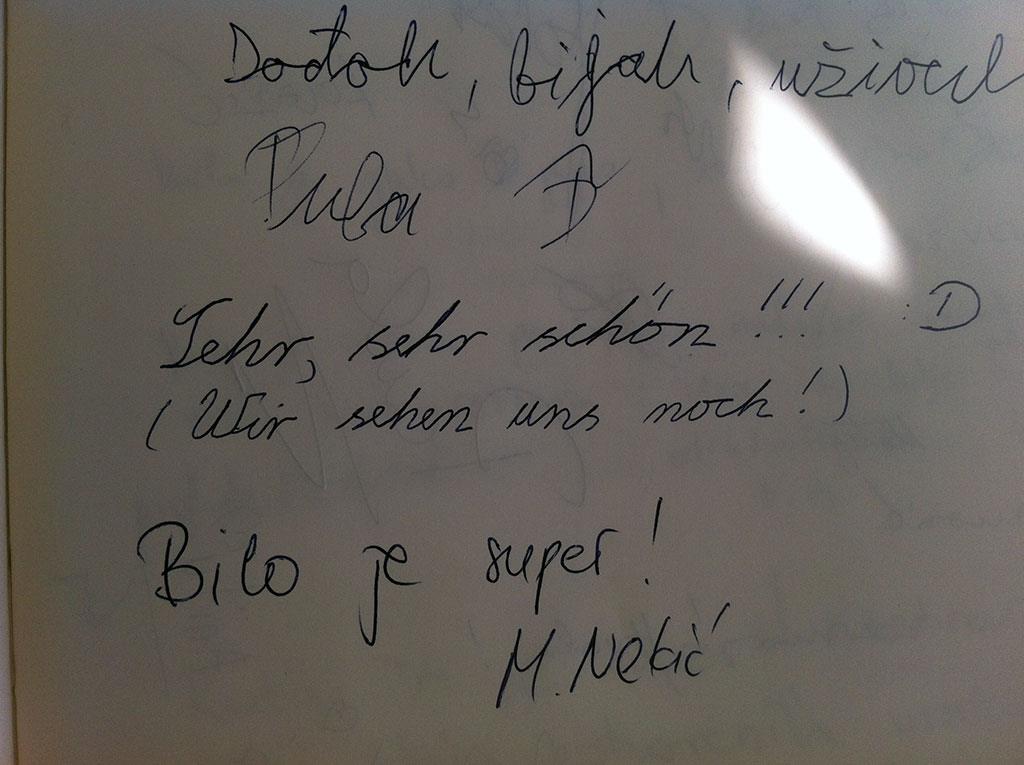 Dođoh, bijah, uživah
Pula
Sehr, sehr schön!!! :D
(Wir sehen uns noch!)
Bilo je super!
M. Nekić